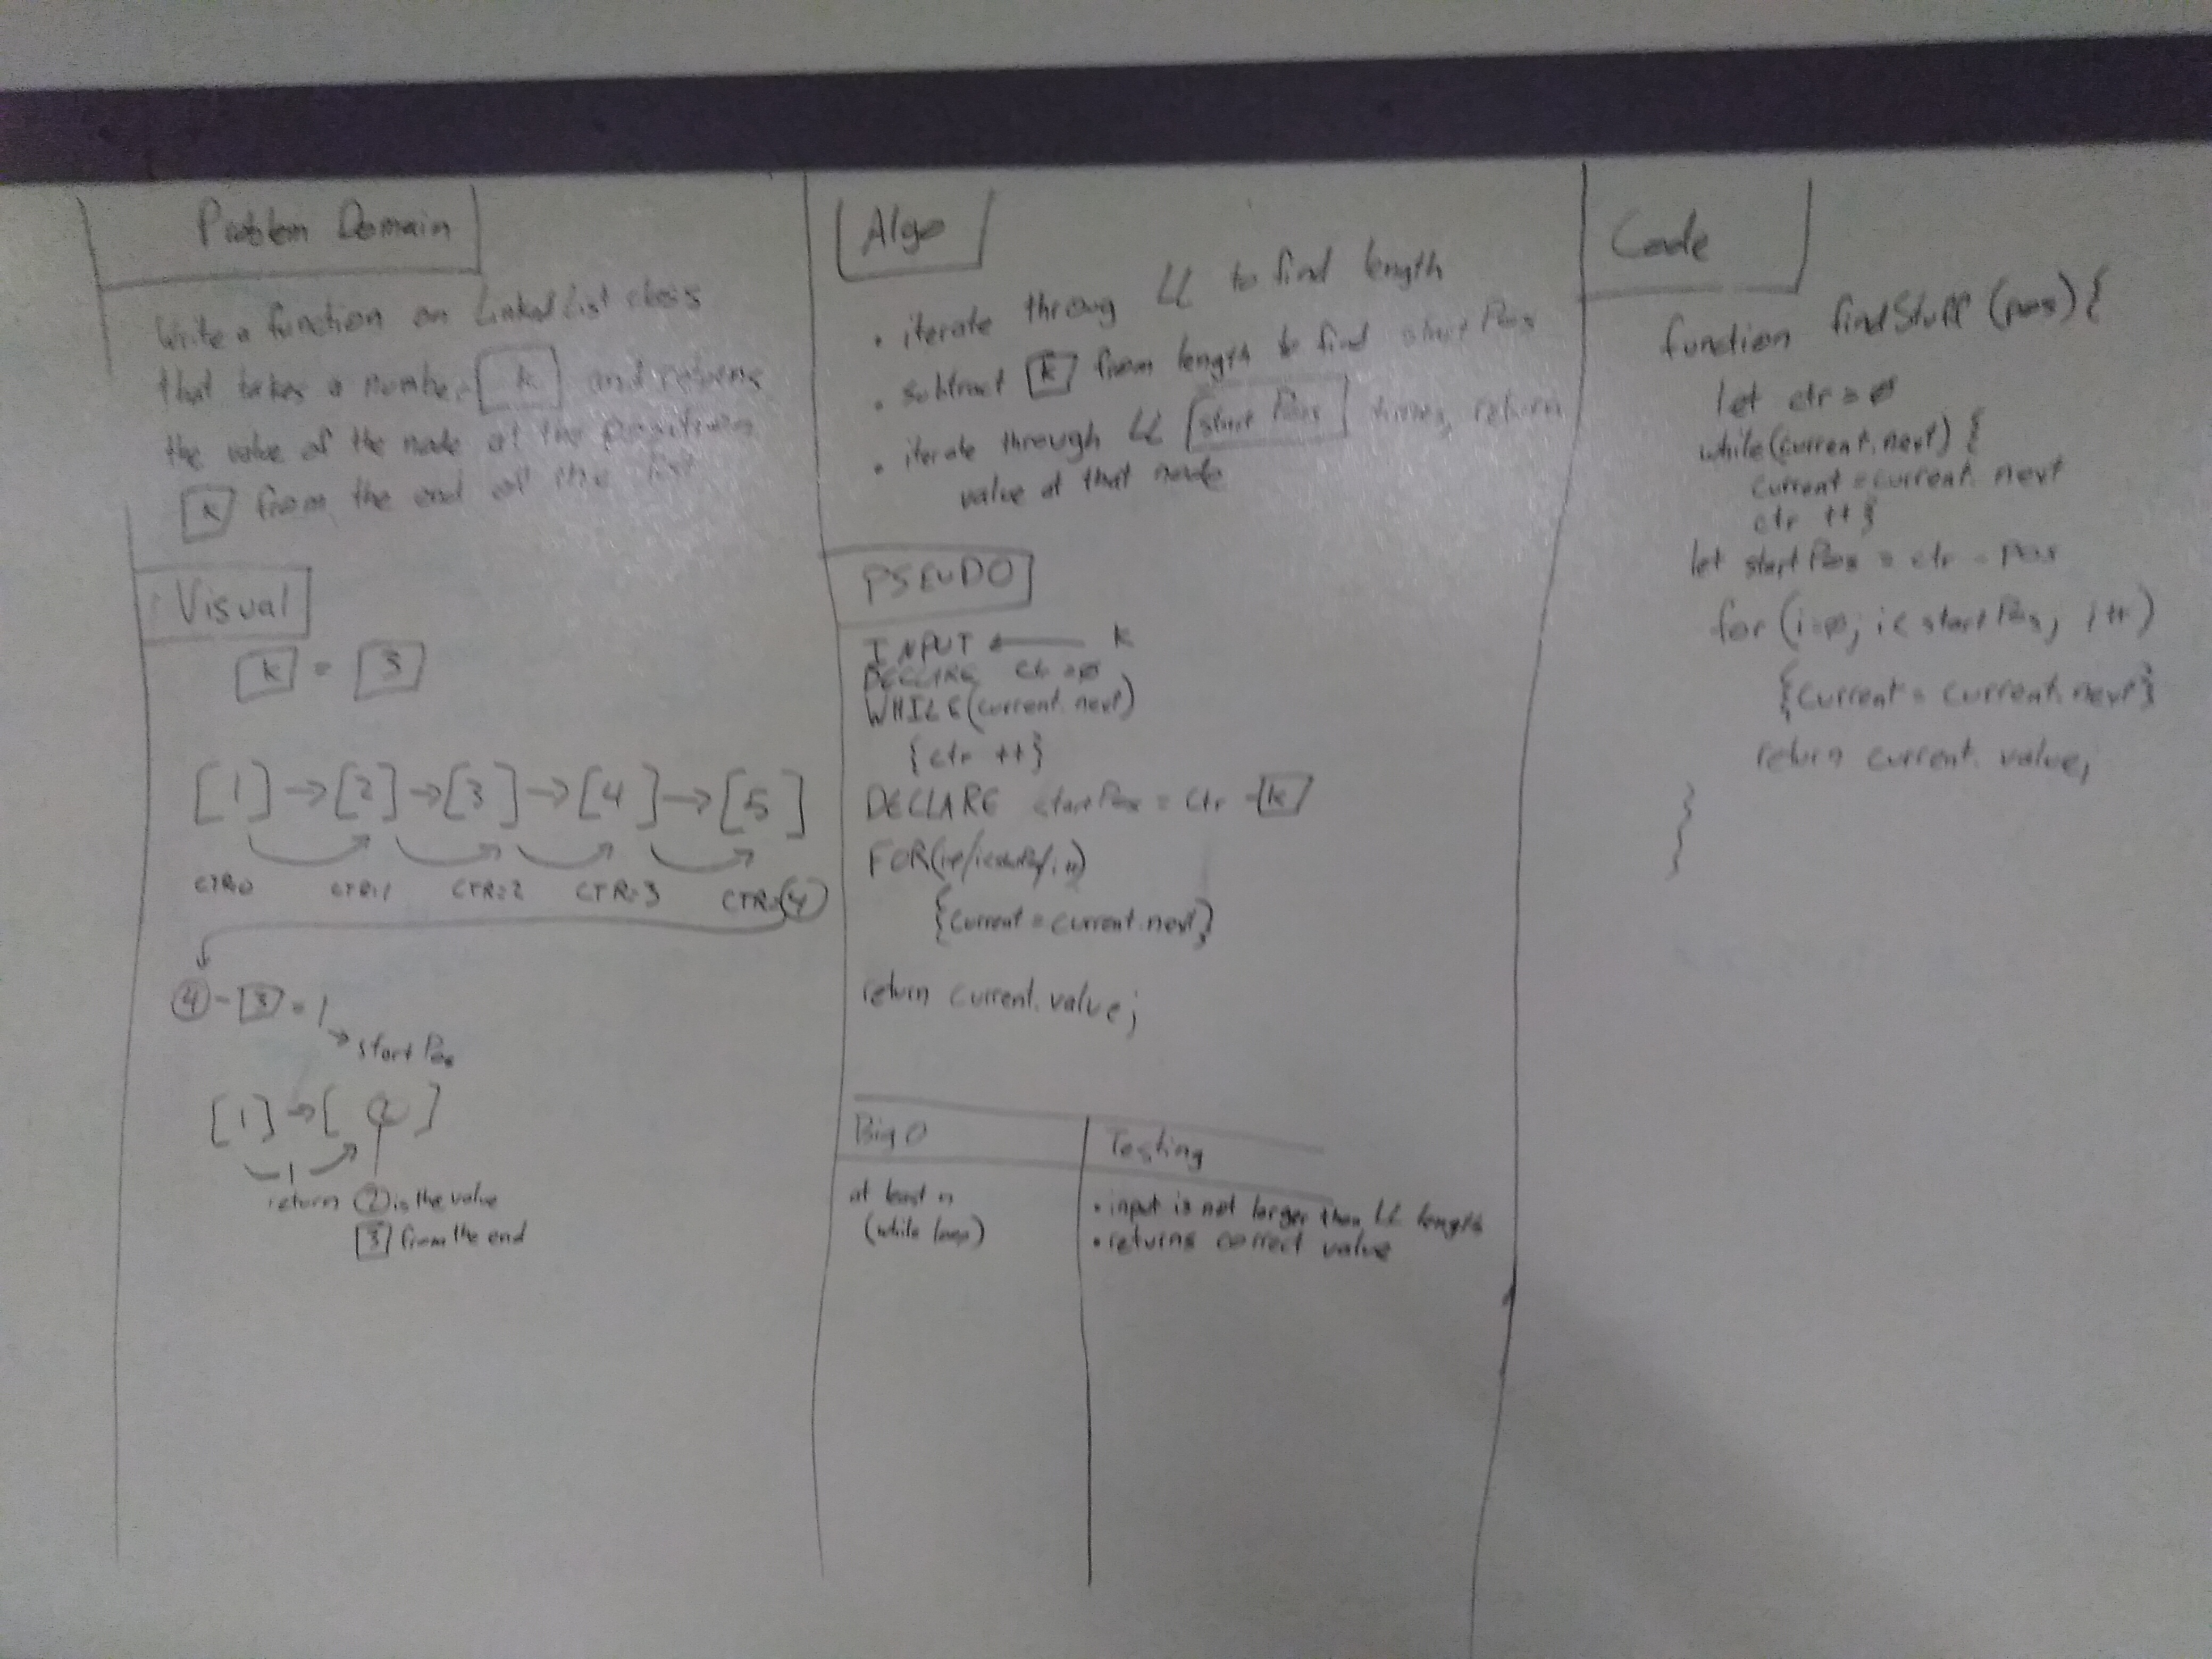 Problem Domain
Write a function on Linked List class
that takes a number k and returns
the value of the node at the positions
k from the end of the list
Visual
k = 3
[1] → [2] → [3] → [4] → [5]
CTR=0 CTR=1 CTR=2 CTR=3 CTR=4
4 - 3 = 1
→ start Pos
[1] → [2]
1
return 2 is the value
3 from the end
Algo
• iterate throug LL to find length
• subtract k from length to find start Pos
• iterate through LL start Pos times, return
value at that node
PSEUDO
INPUT ← k
DECLARE ctr = ø
WHILE (current.next)
{ctr ++}
DECLARE startPos = ctr - k
FOR(i=ø/i<startPos/i++)
{current = current.next}
return current.value;
Big O
at least n
(while loop)
Testing
• input is not larger than LL length
• returns correct value
Code
function findStuff (pos) {
let ctr = ø
while(current.next) {
current = current.next
ctr ++}
let startPos = ctr - pos
for (i=ø; i< startPos; i++)
{current = current.next}
return current.value;
}